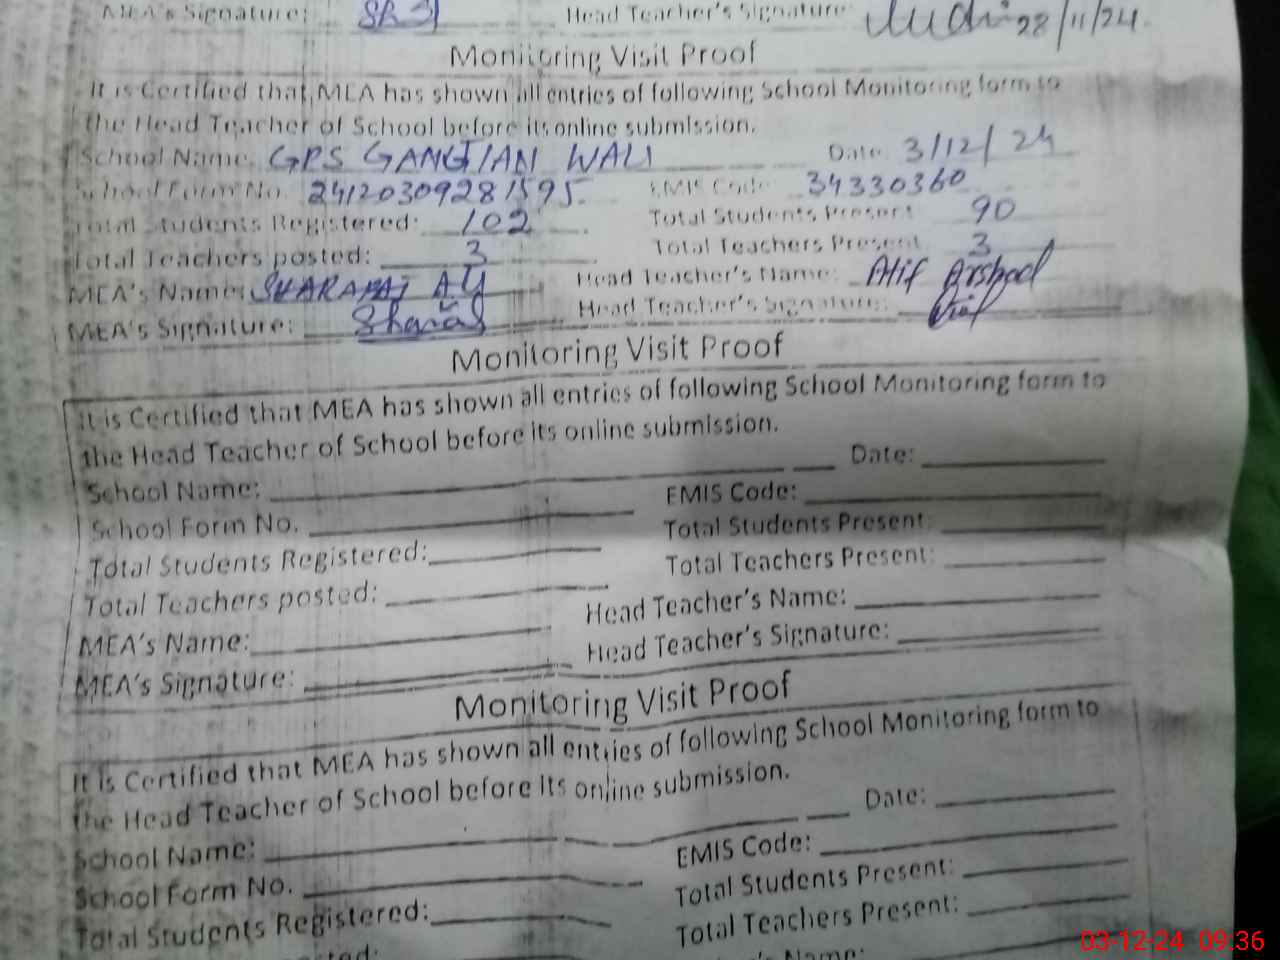 MEA's Signature: Head Teacher's Signature: 28/11/24
Monitoring Visit Proof
It is Certified that MEA has shown all entries of following School Monitoring form to
the Head Teacher of School before its online submission.
School Name: GPS GANGTIAN WALI Date: 3/12/24
School Form No. 24120309281595. EMIS Code: 34330360
Total Students Registered: 102 Total Students Present 90
Total Teachers posted: 3 Total Teachers Present 3
MEA's Name: SHARAFAT ALI Head Teacher's Name: Atif Arshad
MEA's Signature: Head Teacher's Signature:
Monitoring Visit Proof
It is Certified that MEA has shown all entries of following School Monitoring form to
the Head Teacher of School before its online submission.
School Name: Date:
School Form No. EMIS Code:
Total Students Registered: Total Students Present:
Total Teachers posted: Total Teachers Present:
MEA's Name: Head Teacher's Name:
MEA's Signature: Head Teacher's Signature:
Monitoring Visit Proof
It is Certified that MEA has shown all entries of following School Monitoring form to
the Head Teacher of School before its online submission.
School Name: Date:
School Form No. EMIS Code:
Total Students Registered: Total Students Present:
Total Teachers Present:
03-12-24 09:36